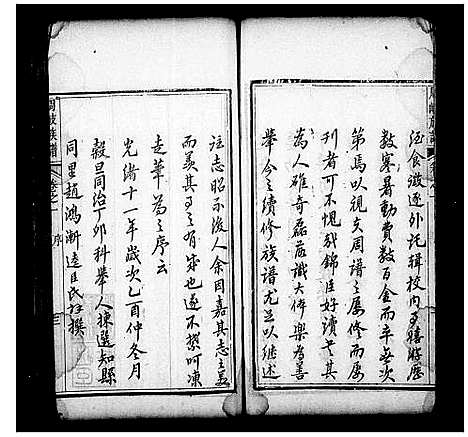 酒食徵逐外託輯校內司譜將歷
數寒暑動費數百金而卒無次
第焉以視支周譜之屢修而屢
刊者可不愧哉錦臣好讀書其
為人雄奇磊落識大體樂為善
舉今之續修族譜尤足以繼述
往志昭示後人余因嘉其志之美
而羨其事之有成也遂不禁呵凍
走筆為之序云
光緒十一年歲次乙酉仲冬月
穀旦同治丁卯科舉人揀選知縣
同里趙鴻漸逵臣氏拜撰
族譜
卷之一
序
三